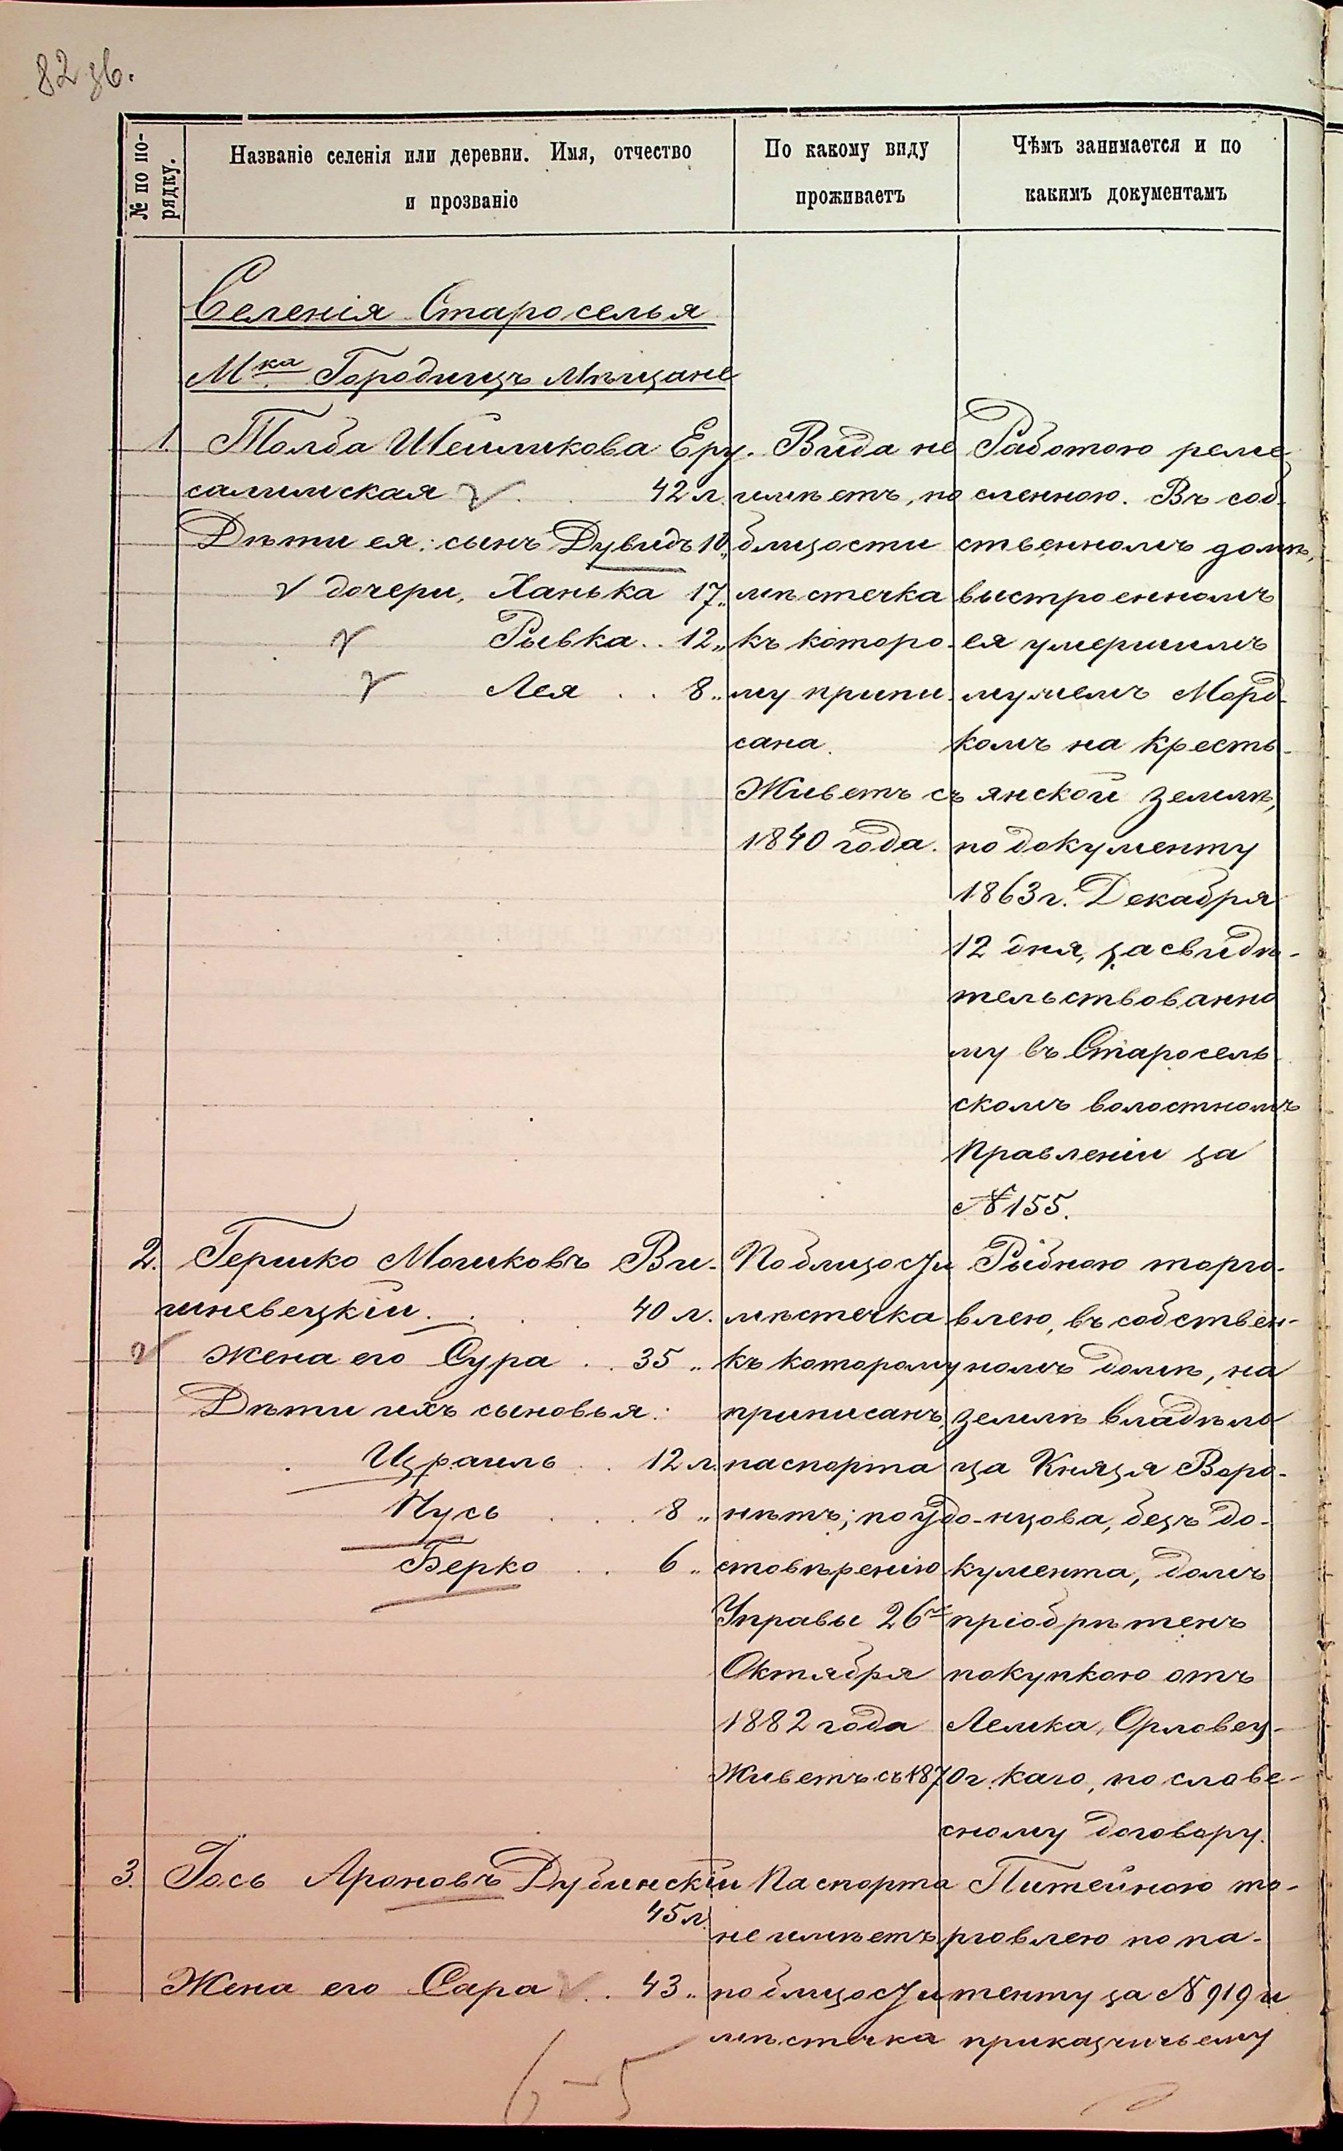 82 зв.
№ по по-
рядку.
Названіе селенія или деревни. Имя, отчество
и прозваніе
По какому виду
проживаетъ
Чѣмъ занимается и по
какимъ документамъ
Селенія Староселья
Мка Городищъ Мѣщане
1. Толба Шешликова Еру-
салимская 42 л.
Дѣти ея: сынъ Дувидъ 10 „
дочери, Ханька 17 „
Рывка . . 12 „
Лея . . 8 „
Вида не
имѣетъ, по
близости
мѣстечка
къ которо-
му припи-
сана.
Живетъ съ
1840 года.
Работою реме-
сленною. Въ соб-
ственномъ домѣ,
выстроенномъ
ея умершимъ
мужемъ Морд-
комъ на кресть-
янской землѣ,
по документу
1863 г. Декабря
12 дня, засвидѣ-
тельствованно
му въ Старосель
скомъ волостномъ
Правленіи за
№ 155.
2. Гершко Мошковъ Ви-
шневецкій . . . 40 л.
жена его Сура . . 35 „
Дѣти ихъ сыновья:
Израиль . . 12 л.
Нусь . . . 8 „
Берко . . 6 „
По близости
мѣстечка
къ которому
приписанъ,
паспорта
нѣтъ; по удо-
стовѣренію
Управы 26го
Октября
1882 года
Живетъ съ 1870 г.
Рыбною торго-
влею, въ собствен-
номъ домѣ, на
землѣ владѣль
ца Князя Воро-
нцова, безъ до-
кумента, домъ
пріобрѣтенъ
покупкою отъ
Лейка Орловец-
каго, по слове-
сному договору.
3. Іось Ароновъ Дубинскій
45 л.
Жена его Сара . . 43 „
Паспорта
не имѣетъ
по близости
мѣстечка
Питейною то-
рговлею по па-
тенту за № 919 и
приказчичьему
6-5